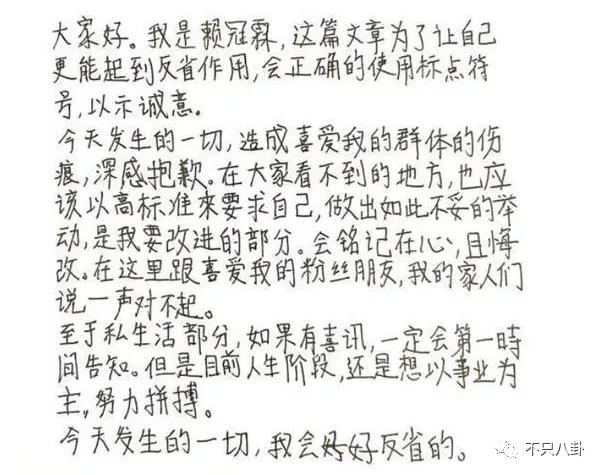 大家好。我是赖冠霖,这篇文章为了让自己
更能起到反省作用,会正确的使用标点符
号,以示诚意。
今天发生的一切,造成喜爱我的群体的伤
痕,深感抱歉。在大家看不到的地方,也应
该以高标准來要求自己,做出如此不妥的举
动,是我要改进的部分。会铭记在心,且悔
改。在这里跟喜爱我的粉丝朋友,我的家人们
说一声对不起。
至于私生活部分,如果有喜讯,一定会第一時
间告知。但是目前人生阶段,还是想以事业为
主,努力拼搏。
今天发生的一切,我会好好反省的。
不只八卦